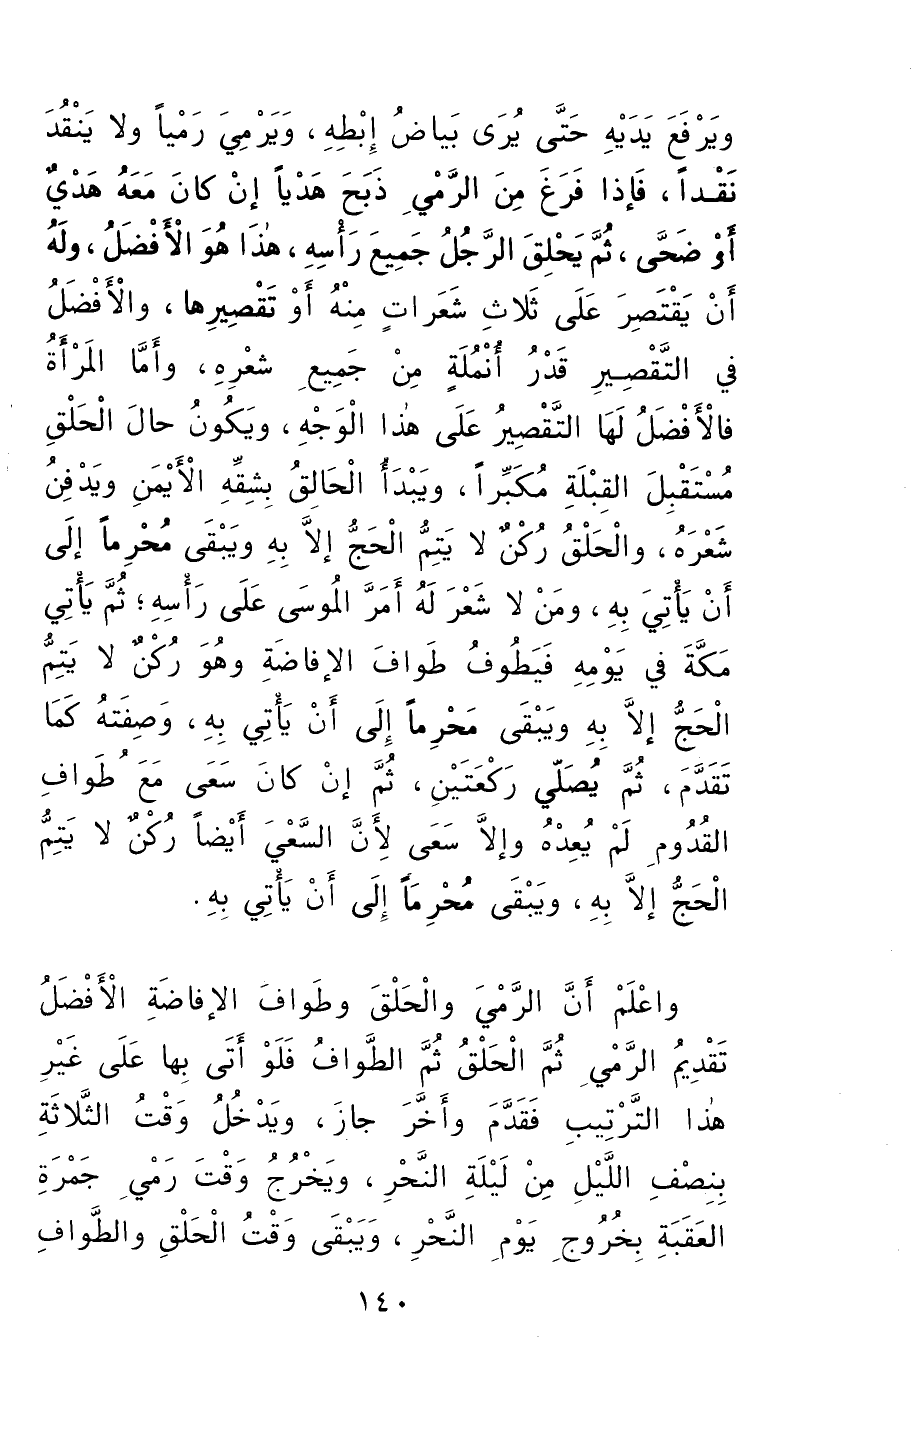 ويَرْفَعَ يَدَيْهِ حَتَّى يُرَى بَياضُ إبْطِهِ، وَيَرْمِيَ رَمْياً ولا يَنْقُدَ
نَقْداً، فَإذا فَرَغَ مِنَ الرَّمْيِ ذَبَحَ هَدْياً إنْ كانَ مَعَهُ هَدْيٌ
أوْ ضَحَّى، ثُمَّ يَحْلِقَ الرَّجُلُ جَمِيعَ رَأْسِهِ، هٰذَا هُوَ الْأَفْضَلُ، ولَهُ
أَنْ يَقْتَصِرَ عَلَى ثَلاثِ شَعَراتٍ مِنْهُ أوْ تَقْصِيرِها، والْأَفْضَلُ
في التَّقْصِيرِ قَدْرُ أُنْمُلَةٍ مِنْ جَمِيعِ شعْرِهِ، وأَمَّا المَرْأَةُ
فالْأَفْضَلُ لَهَا التَّقْصِيرُ عَلَى هٰذا الْوَجْهِ، ويَكُونُ حالَ الْحَلْقِ
مُسْتَقْبِلَ القِبْلَةِ مُكَبِّراً، ويَبْدَأُ الْحَالِقُ بِشقِّهِ الْأَيْمَنِ ويَدْفِنُ
شَعْرَهُ، والْحَلْقُ رُكْنٌ لا يَتِمُّ الْحَجُّ إلاَّ بِهِ ويَبْقَى مُحْرِماً إلى
أَنْ يَأْتِيَ بِهِ، ومَنْ لا شَعْرَ لَهُ أمَرَّ المُوسَى عَلَى رَأْسِهِ؛ ثُمَّ يَأْتِي
مَكَّةَ في يَوْمِهِ فَيَطُوفُ طَوافَ الإفاضَةِ وهُوَ رُكْنٌ لا يَتِمُّ
الْحَجُّ إلاَّ بِهِ ويَبْقَى مَحْرِماً إِلَى أَنْ يَأْتِي بِهِ، وَصِفتهُ كَمَا
تَقَدَّمَ، ثُمَّ يُصَلّي رَكْعَتَيْنِ، ثُمَّ إنْ كانَ سَعَى مَعَ طَوافِ
القُدُومِ لَمْ يُعِدْهُ وإلاَّ سَعَى لِأَنَّ السَّعْيَ أيْضاً رُكْنٌ لا يَتِمُّ
الْحَجُّ إلاَّ بِهِ، ويَبْقَى مُحْرِمَاً إِلَى أَنْ يَأْتِي بِهِ.
واعْلَمْ أَنَّ الرَّمْيَ والْحَلْقَ وطَوافَ الإفاضَةِ الْأَفْضَلُ
تَقْدِيمُ الرَّمْيِ ثُمَّ الْحَلْقُ ثُمَّ الطَّوافُ فَلَوْ أَتَى بِها عَلَى غَيْرِ
هٰذا التَّرْتِيبِ فَقَدَّمَ وأخَّرَ جازَ، ويَدْخُلُ وَقْتُ الثَّلاثَةِ
بِنِصْفِ اللَّيْلِ مِنْ لَيْلَةِ النَّحْرِ، ويَخْرُجُ وَقْتَ رَمْيِ جَمْرَةِ
العَقَبَةِ بِخُرُوجِ يَوْمِ النَّحْرِ، وَيَبْقَى وَقْتُ الْحَلْقِ والطَّوافِ
١٤٠